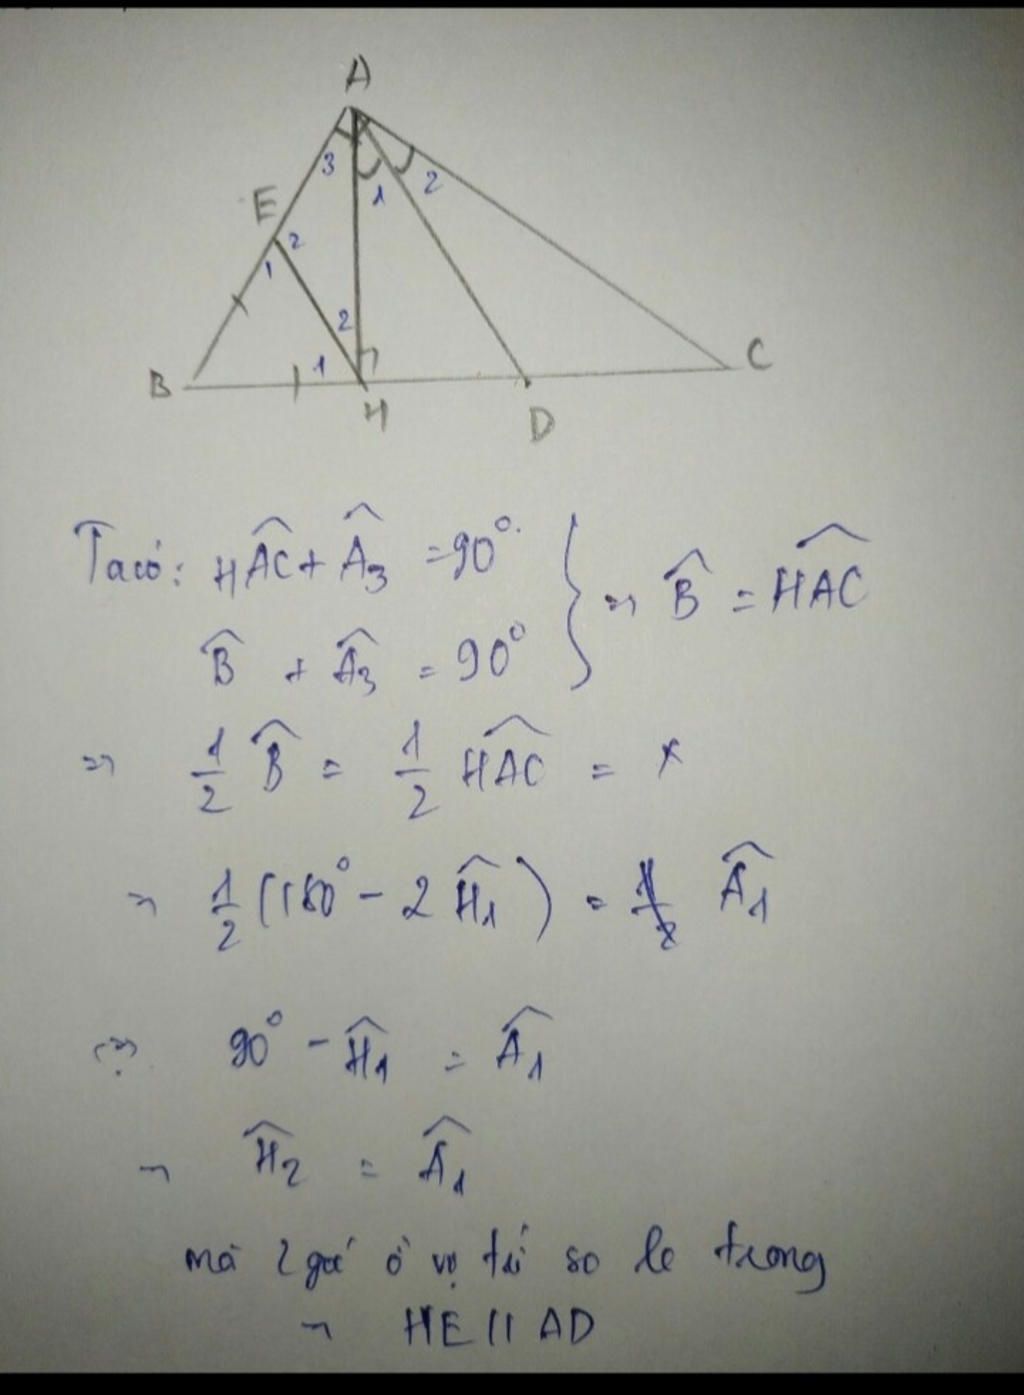 A
E
3
1
2
2
1
2
1
B
H
D
C
Ta có: HAC + A₃ = 90°
B + A₃ = 90°
} => B = HAC
=> 1/2 B = 1/2 HAC = x
=> 1/2 (180° - 2 H₁) = A₁
90° - H₁ = A₁
=> H₂ = A₁
mà 2 góc ở vị trí so le trong
=> HE // AD